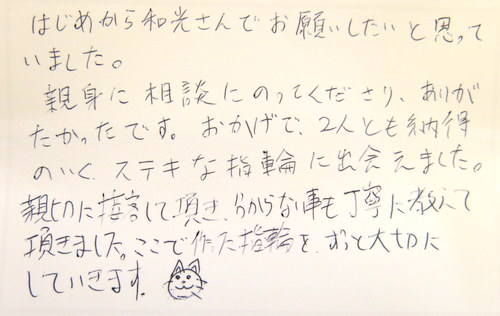 はじめから和光さんでお願いしたいと思って
いました。
親身に相談にのってくださり、ありが
たかったです。おかげで、2人とも納得
のいく、ステキな指輪に出会えました。
親切に接客して頂き、分からない事も丁寧に教えて
頂きました。ここで作った指輪を、ずっと大切に
していきます。